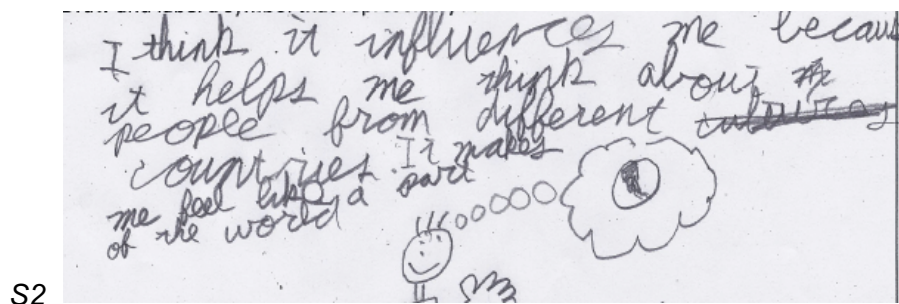 I think it influences me becaus
it helps me think about
people from different cultures
countries. It makes
me feel like a part
of the world
S2